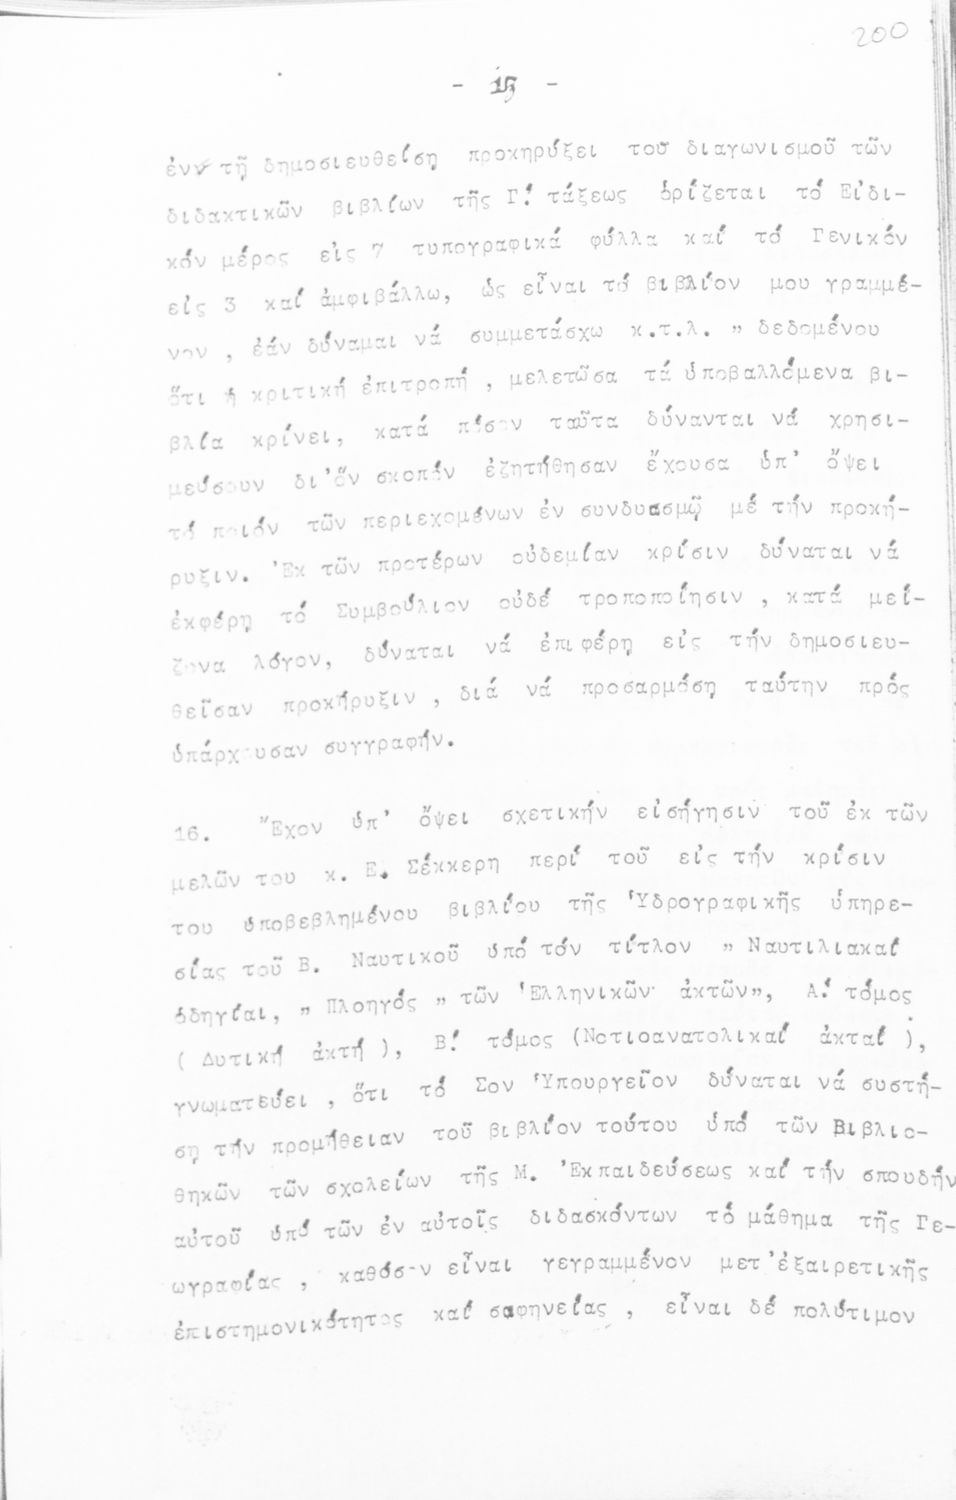 200
- 15 -
ἐν τῇ δημοσιευθείσῃ προκηρύξει τοῦ διαγωνισμοῦ τῶν
διδακτικῶν βιβλίων τῆς Γ΄. τάξεως ὁρίζεται τό Εἰδι-
κόν μέρος εἰς 7 τυπογραφικά φύλλα καί τό Γενικόν
εἰς 3 καί ἀμφιβάλλω, ὡς εἶναι τό βιβλίον μου γραμμέ-
νον , ἐάν δύναμαι νά συμμετάσχω κ.τ.λ. " δεδομένου
ὅτι ἡ κριτική ἐπιτροπή , μελετῶσα τά ὑποβαλλόμενα βι-
βλία κρίνει, κατά πόσον ταῦτα δύνανται νά χρησι-
μεύσουν δι'ὅν σκοπόν ἐζητήθησαν ἔχουσα ὑπ' ὄψει
τό ποιόν τῶν περιεχομένων ἐν συνδυασμῷ μέ τήν προκή-
ρυξιν. Ἐκ τῶν προτέρων οὐδεμίαν κρίσιν δύναται νά
ἐκφέρῃ τό Συμβούλιον οὐδέ τροποποίησιν , κατά μεί-
ζονα λόγον, δύναται νά ἐπιφέρῃ εἰς τήν δημοσιευ-
θεῖσαν προκήρυξιν , διά νά προσαρμόσῃ ταύτην πρός
ὑπάρχουσαν συγγραφήν.
16. Ἔχον ὑπ' ὄψει σχετικήν εἰσήγησιν τοῦ ἐκ τῶν
μελῶν του κ. Ε. Σέκκερη περί τοῦ εἰς τήν κρίσιν
του ὑποβεβλημένου βιβλίου τῆς Ὑδρογραφικῆς ὑπηρε-
σίας τοῦ Β. Ναυτικοῦ ὑπό τόν τίτλον " Ναυτιλιακαί
ὁδηγίαι, " Πλοηγός " τῶν Ἑλληνικῶν ἀκτῶν", Α΄. τόμος
( Δυτική ἀκτή ), Β΄. τόμος (Νοτιοανατολικαί ἀκταί ),
γνωματεύει , ὅτι τό Σον Ὑπουργεῖον δύναται νά συστή-
σῃ τήν προμήθειαν τοῦ βιβλίον τούτου ὑπό τῶν Βιβλιο-
θηκῶν τῶν σχολείων τῆς Μ. Ἐκπαιδεύσεως καί τήν σπουδήν
αὐτοῦ ὑπό τῶν ἐν αὐτοῖς διδασκόντων τό μάθημα τῆς Γε-
ωγραφίας , καθόσον εἶναι γεγραμμένον μετ'ἐξαιρετικῆς
ἐπιστημονικότητος καί σαφηνείας , εἶναι δέ πολύτιμον